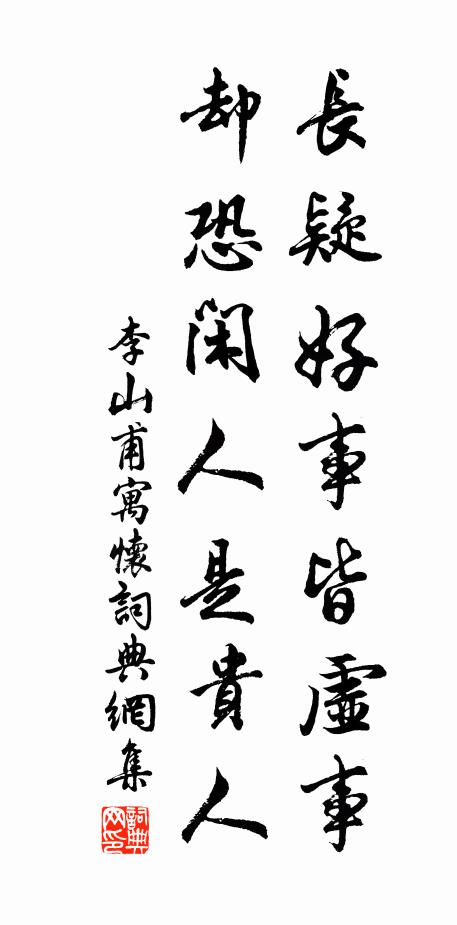 長疑好事皆虛事
却恐閑人是貴人
李山甫寓懷詞典網集
詞典网印